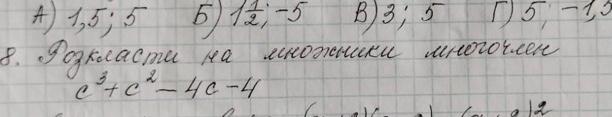 А) 1,5; 5 Б) 1 1/2; -5 В) 3; 5 Г) 5; -1,5
8. Розкласти на множники многочлен
c³ + c² - 4c - 4